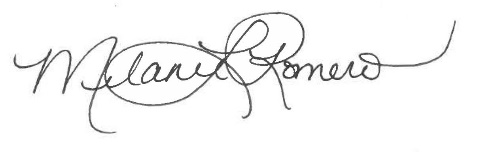 Melanie L Romero